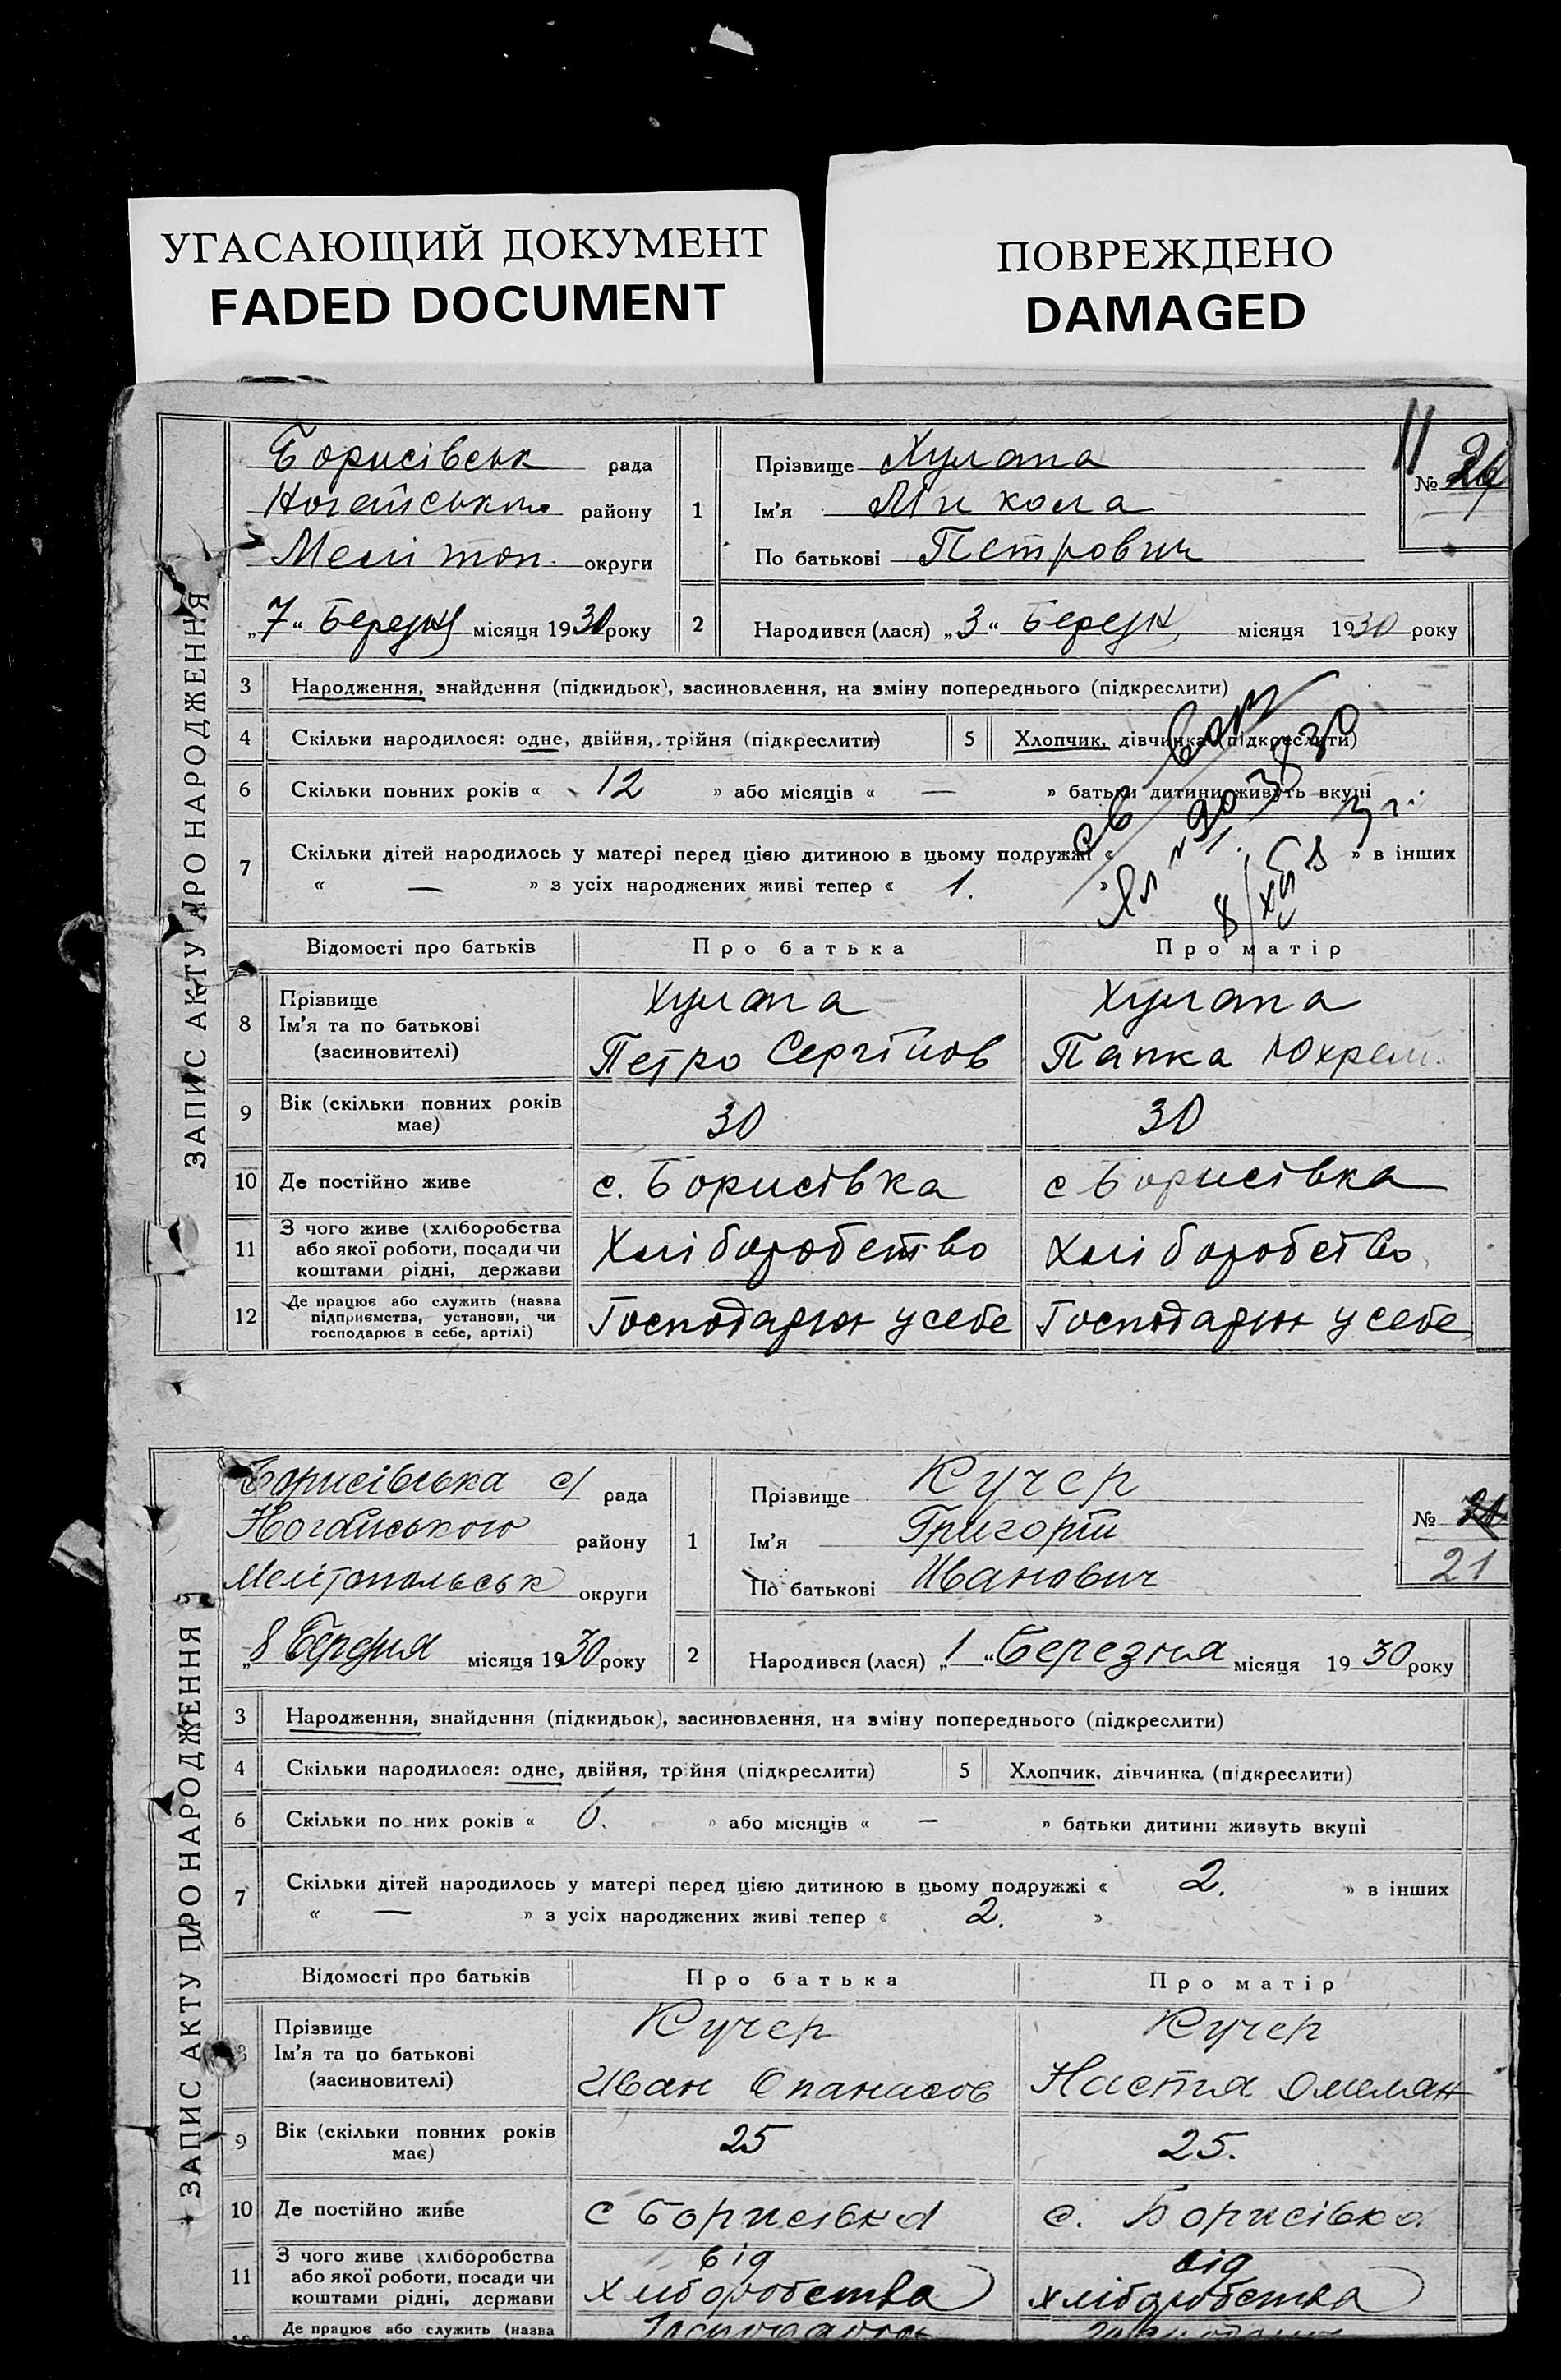 УГАСАЮЩИЙ ДОКУМЕНТ
FADED DOCUMENT
ПОВРЕЖДЕНО
DAMAGED
ЗАПИС АКТУ ПРО НАРОДЖЕННЯ
Борисівськ рада
Ногайського району
Мелітоп. округи
„7“ Березня місяця 1930 року
1
Прізвище Хулапа
Ім'я Микола
По батькові Петрович
№
2
Народився (лася) „3“ Березн місяця 1930 року
3 Народження, знайдення (підкидьок), засиновлення, на зміну попереднього (підкреслити)
4 Скільки народилося: одне, двійня, трійня (підкреслити) 5 Хлопчик, дівчинка (підкреслити)
6 Скільки повних років « 12 » або місяців « — » батьки дитини живуть вкупі
7 Скільки дітей народилось у матері перед цією дитиною в цьому подружжі « » в інших
« — » з усіх народжених живі тепер « 1. »
Відомості про батьків Про батька Про матір
8 Прізвище Хулапа Хулапа
Ім'я та по батькові
(засновителі) Петро Сергійов Папка Юхрем.
9 Вік (скільки повних років має) 30 30
10 Де постійно живе с. Борисівка с Борисівка
11 З чого живе (хліборобства
або якої роботи, посади чи Хліборобство Хліборобство
коштами рідні, держави
12 Де працює або служить (назва
підприємства, установи, чи Господарюн у себе Господарюн у себе
господарює в себе, артілі)
ЗАПИС АКТУ ПРО НАРОДЖЕННЯ
Борисівська с/ рада
Ногайського району
Мелітопольськ округи
„8 Березня місяця 1930 року
1
Прізвище Кучер
Ім'я Григорій
По батькові Иванович
№
21
2
Народився (лася) „1“ Березня місяця 1930 року
3 Народження, знайдення (підкидьок), засиновлення, на зміну попереднього (підкреслити)
4 Скільки народилося: одне, двійня, трійня (підкреслити) 5 Хлопчик, дівчинка (підкреслити)
6 Скільки повних років « 6. » або місяців « — » батьки дитини живуть вкупі
7 Скільки дітей народилось у матері перед цією дитиною в цьому подружжі « 2. » в інших
« — » з усіх народжених живі тепер « 2. »
Відомості про батьків Про батька Про матір
8 Прізвище Кучер Кучер
Ім'я та по батькові
(засиновителі) Иван Опанасов Настя Омелян
9 Вік (скільки повних років має) 25 25.
10 Де постійно живе с Борисівка с. Борисівка
11 З чого живе (хліборобства від від
або якої роботи, посади чи хліборобства хліборобства
коштами рідні, держави
Де працює або служить (назва